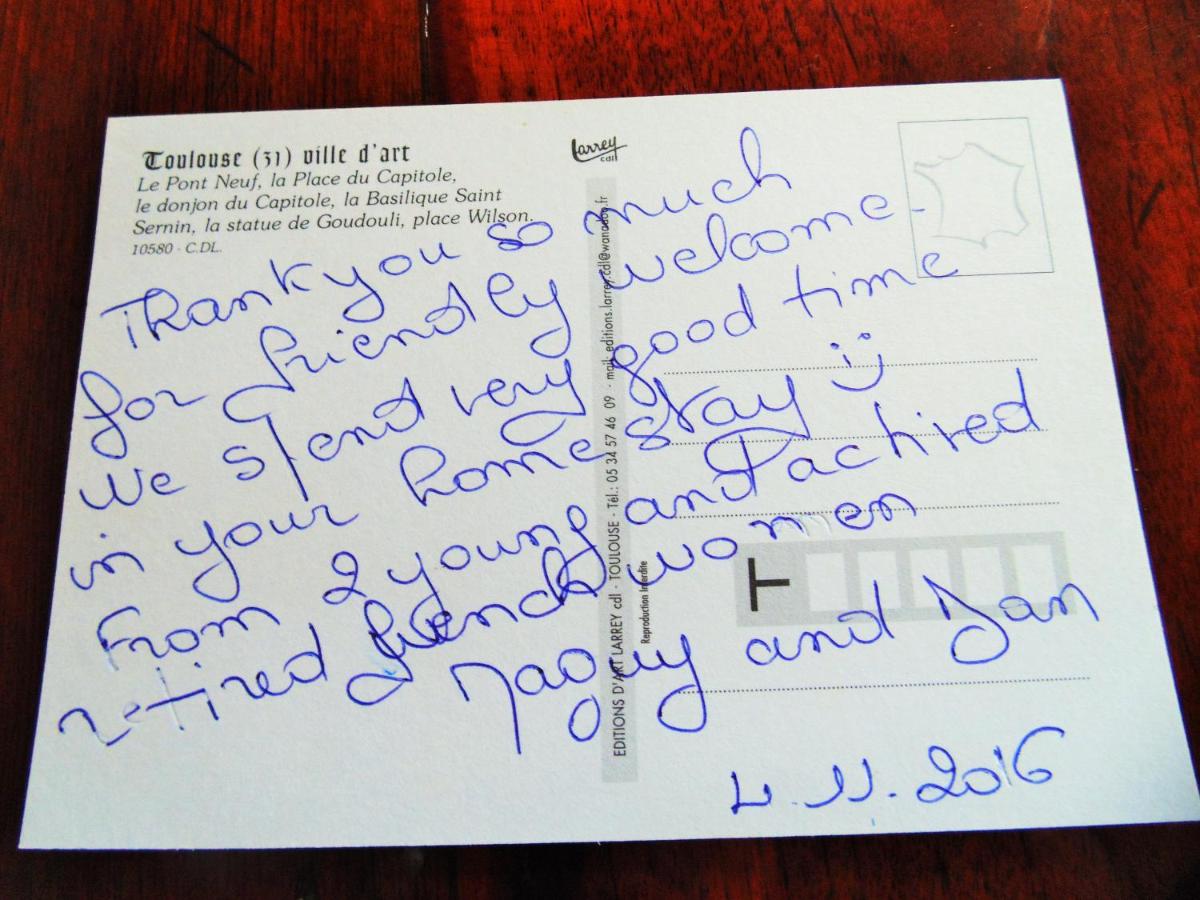 Toulouse (31) ville d'art
Le Pont Neuf, la Place du Capitole,
le donjon du Capitole, la Basilique Saint
Sernin, la statue de Goudouli, place Wilson.
10580 - C.DL.
Larrey
cdl
EDITIONS D'ART LARREY cdl - TOULOUSE - Tél.: 05 34 57 46 09 - mail: editions.larrey.cdl@wanadoo.fr
Reproduction Interdite
Thank you so much
for friendly welcome.
We spend very good time
in your home stay :)
From 2 young and achired
retired french women
Maguy and Dan
4.11.2016
T